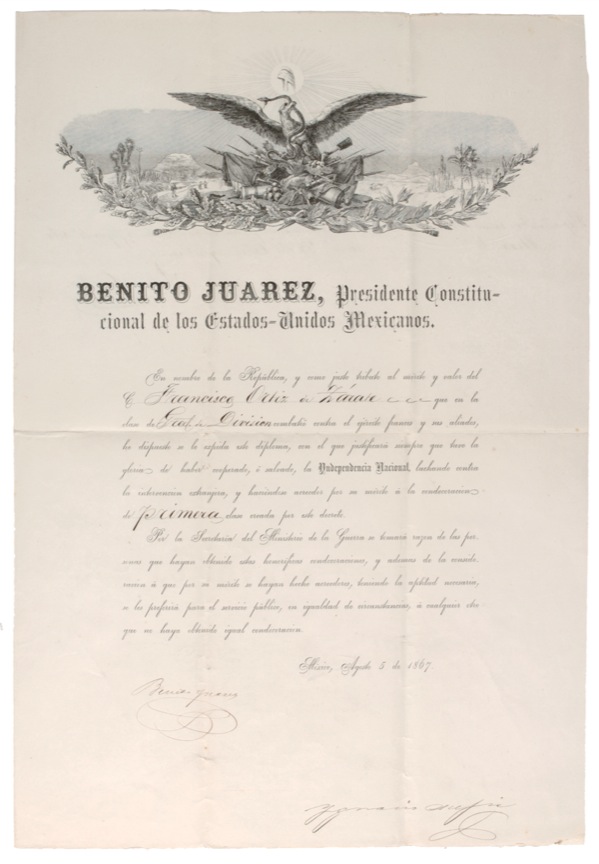 BENITO JUAREZ, Presidente Constitu-
cional de los Estados-Unidos Mexicanos.
En nombre de la República, y como justo tributo al mérito y valor del
C. Francisco Ortiz de Zárate que en la
clase de Gral. de Division combatió contra el ejército frances y sus aliados,
ha dispuesto se le expida este diploma, con el que justificará siempre que tuvo la
gloria de haber cooperado, ó salvado, la Yndependencia Nacional, luchando contra
la intervencion extrangera, y haciéndose acreedor por su mérito á la condecoracion
de primera clase creada por este decreto.
Por la Secretaría del Ministerio de la Guerra se tomará razon de las per
sonas que hayan obtenido estas honoríficas condecoraciones, y ademas de la conside
racion á que por su mérito se hayan hecho acreedores, teniendo la aptitud necesaria,
se les preferirá para el servicio público, en igualdad de circunstancias, á cualquier otro
que no haya obtenido igual condecoracion.
México, Agosto 5 de 1867.
Benito Juarez
Ygnacio Mejia